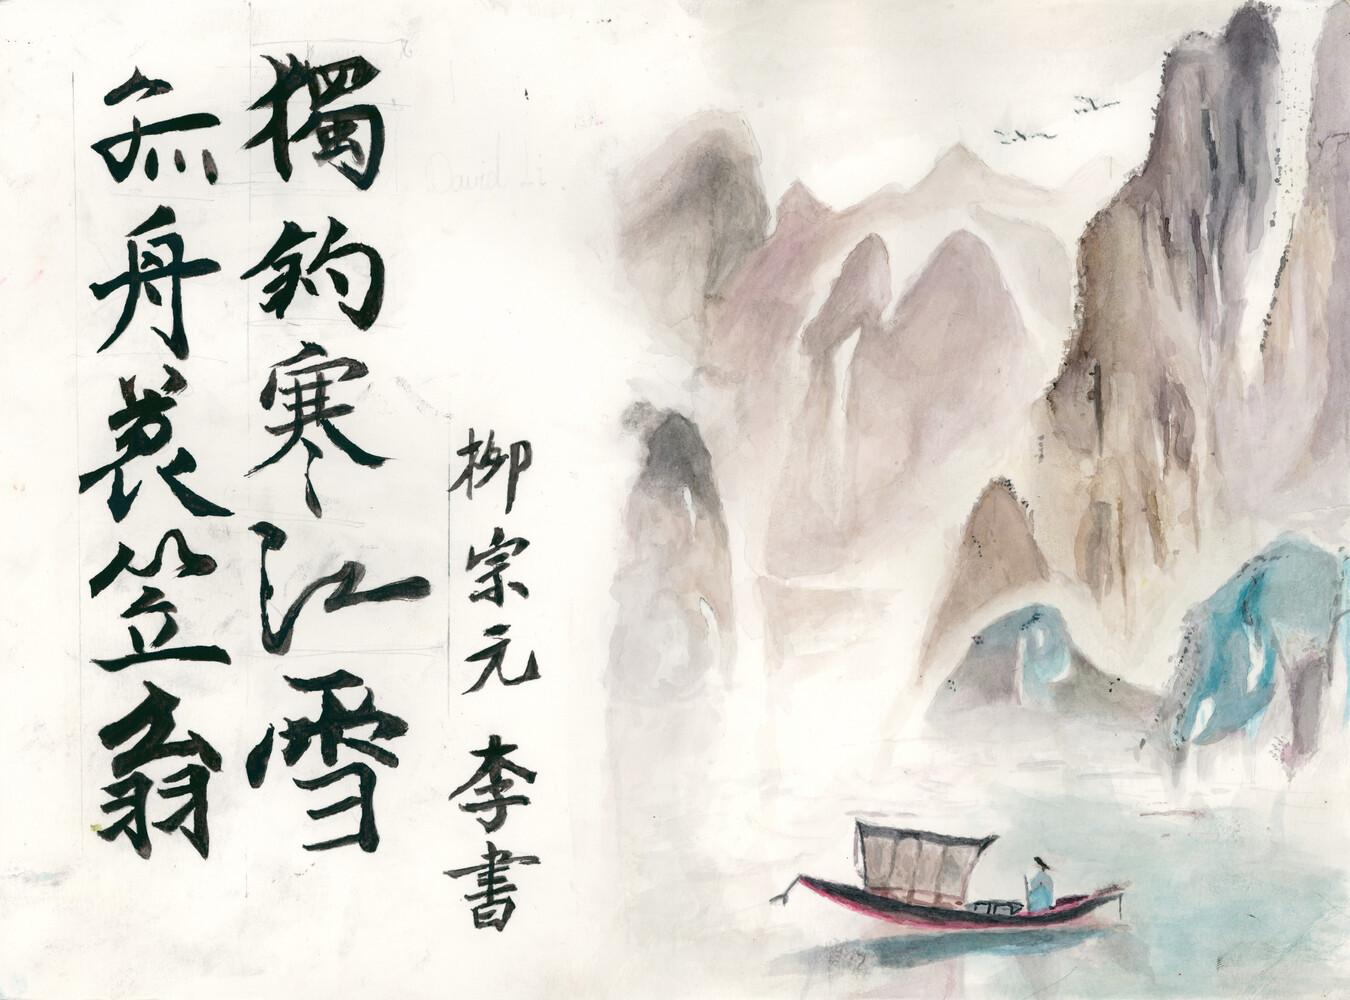 無舟蓑笠翁
獨釣寒江雪
柳宗元 李書
David Li.